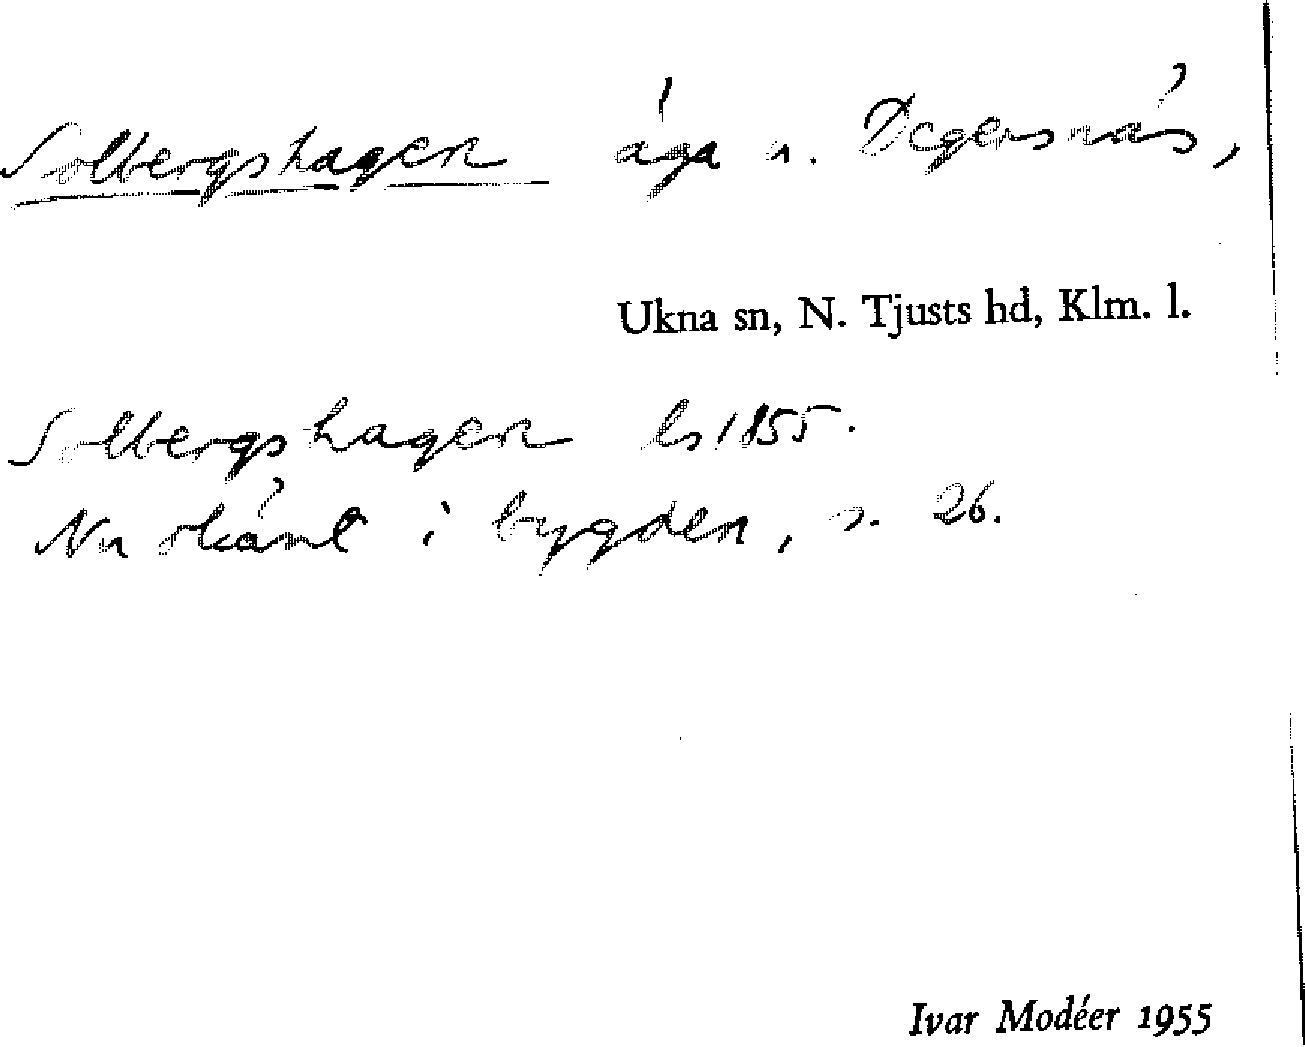 Solbergshagen äga u. Degersnäs,
Ukna sn, N. Tjusts hd, Klm. l.
Solbergshagen ls 1855.
Nu okänt i bygden, s. 26.
Ivar Modéer 1955